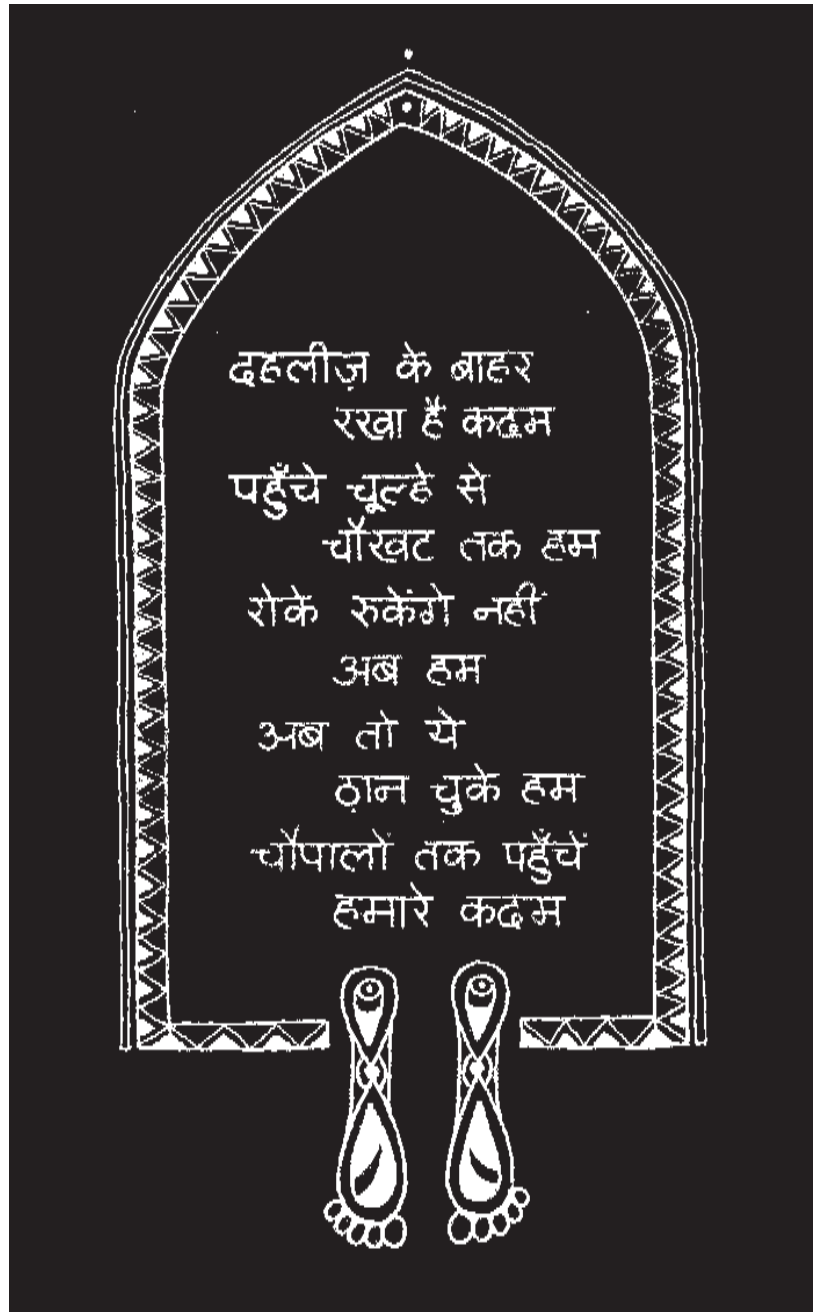 दहलीज़ के बाहर
रखा है कदम
पहुँचे चूल्हे से
चौखट तक हम
रोके रुकेंगे नही
अब हम
अब तो ये
ठान चुके हम
चौपालों तक पहुँचें
हमारे कदम